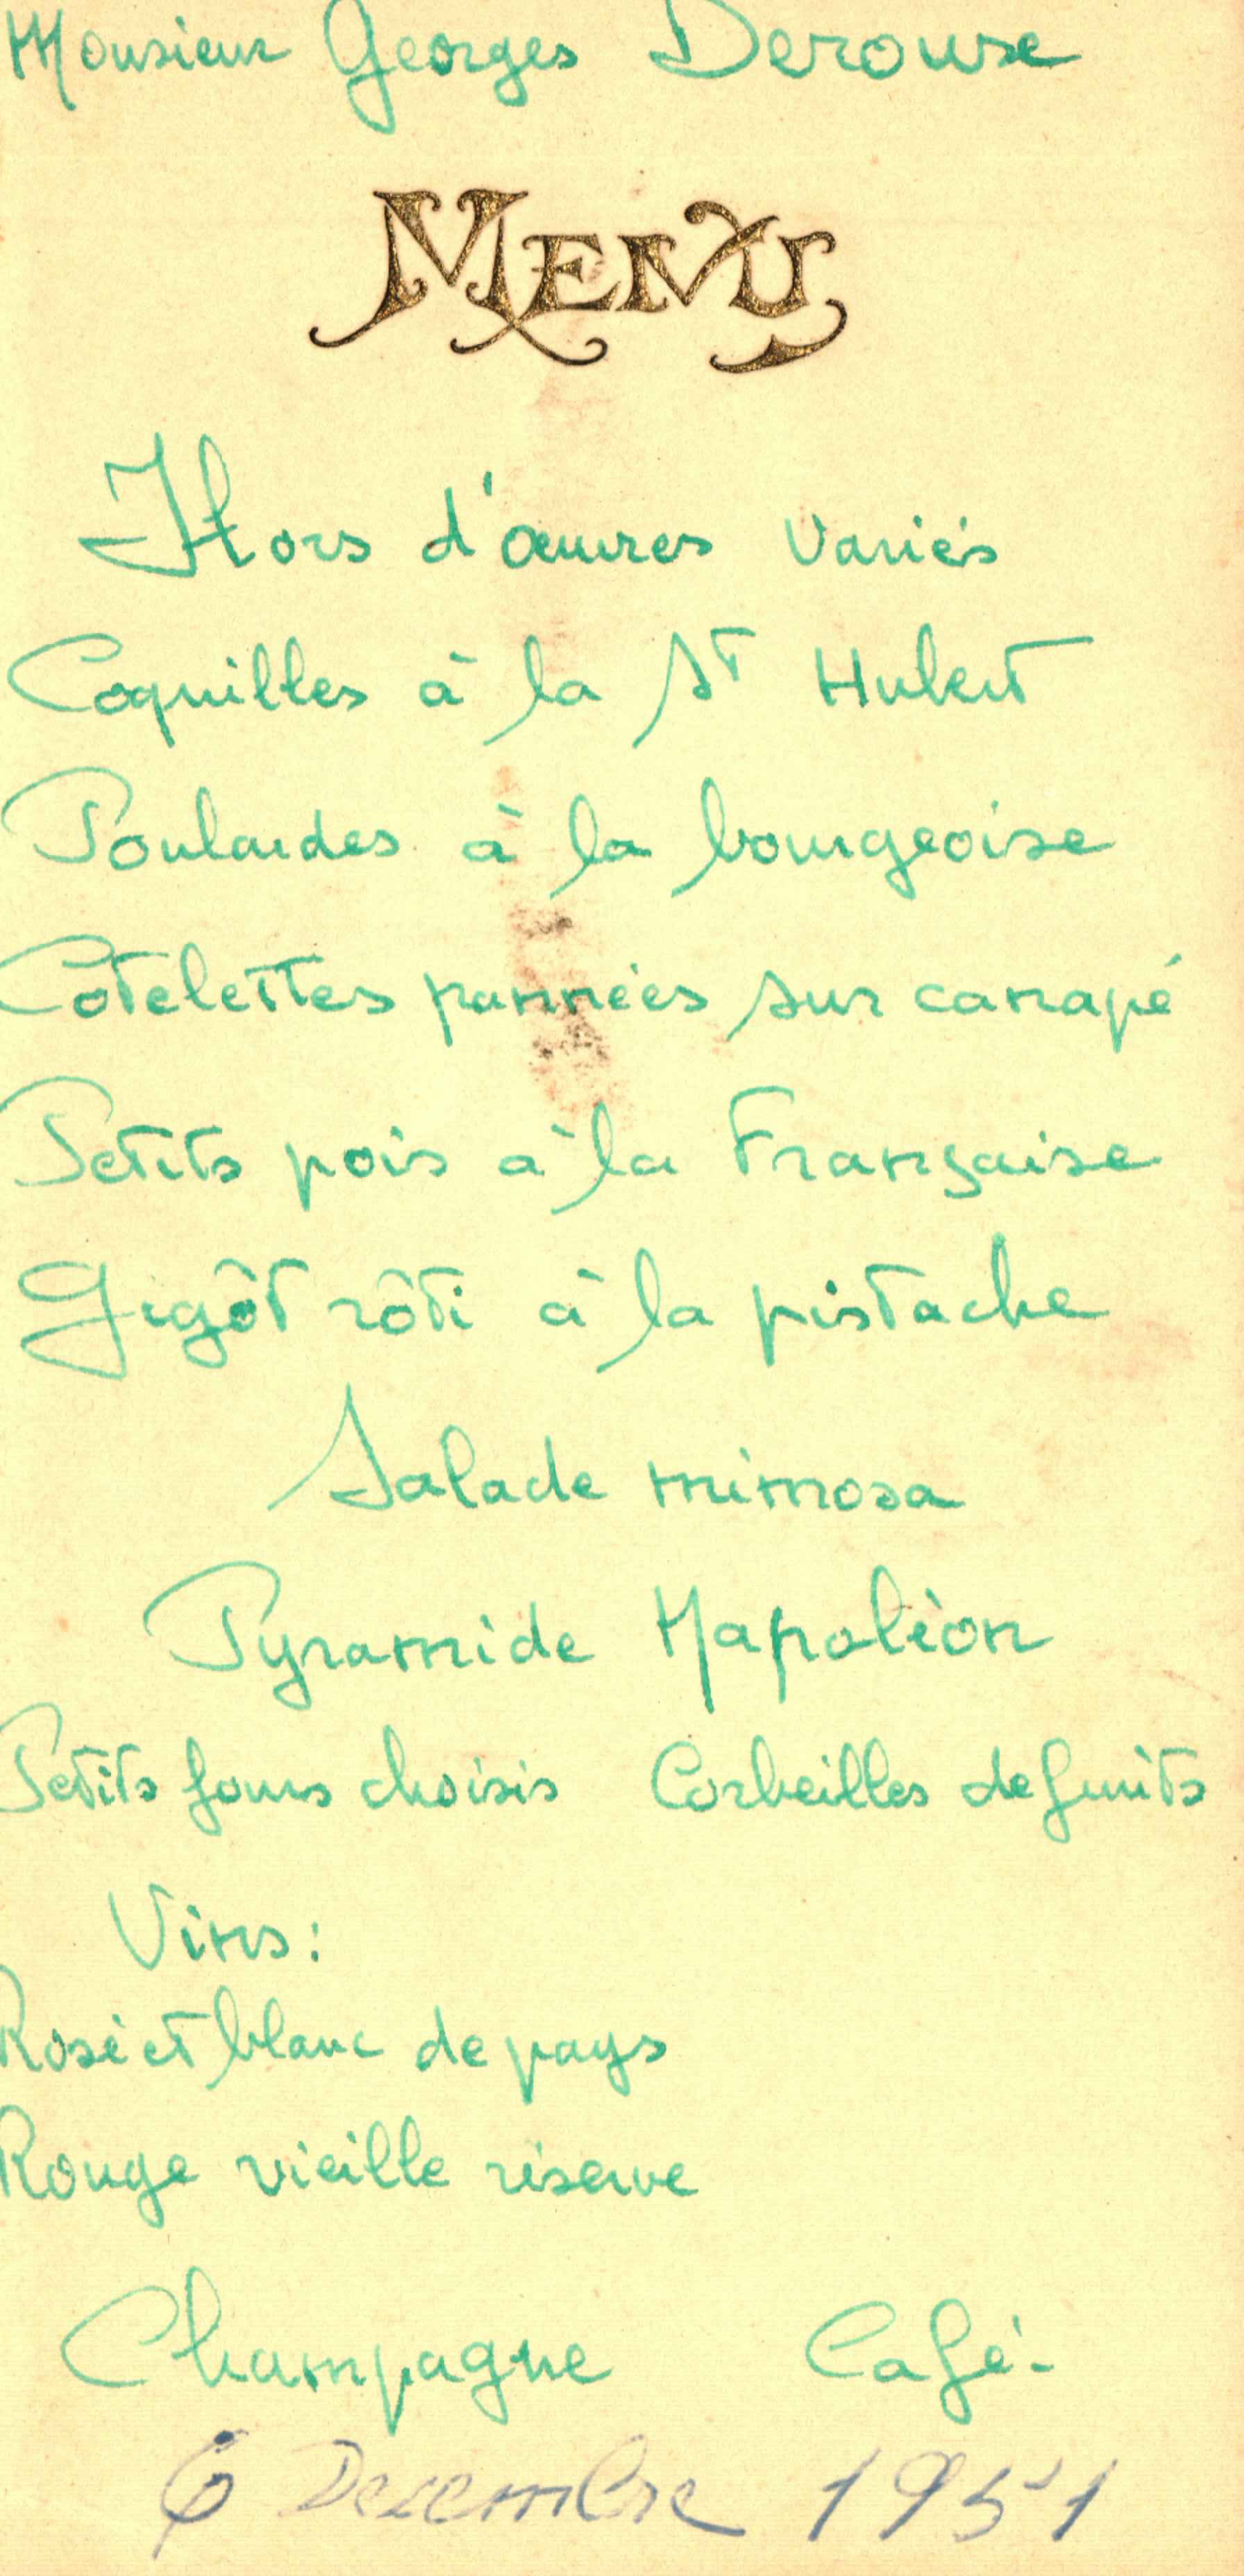 Monsieur Georges Derouse
MENU
Hors d'œuvres variés
Coquilles à la St Hubert
Poulardes à la bourgeoise
Cotelettes pannées sur canapé
Petits pois à la Française
Gigôt rôti à la pistache
Salade mimosa
Pyramide Napoléon
Petits fours choisis Corbeilles de fruits
Vins:
Rosé et blanc de pays
Rouge vieille réserve
Champagne Café.
6 Decembre 1951